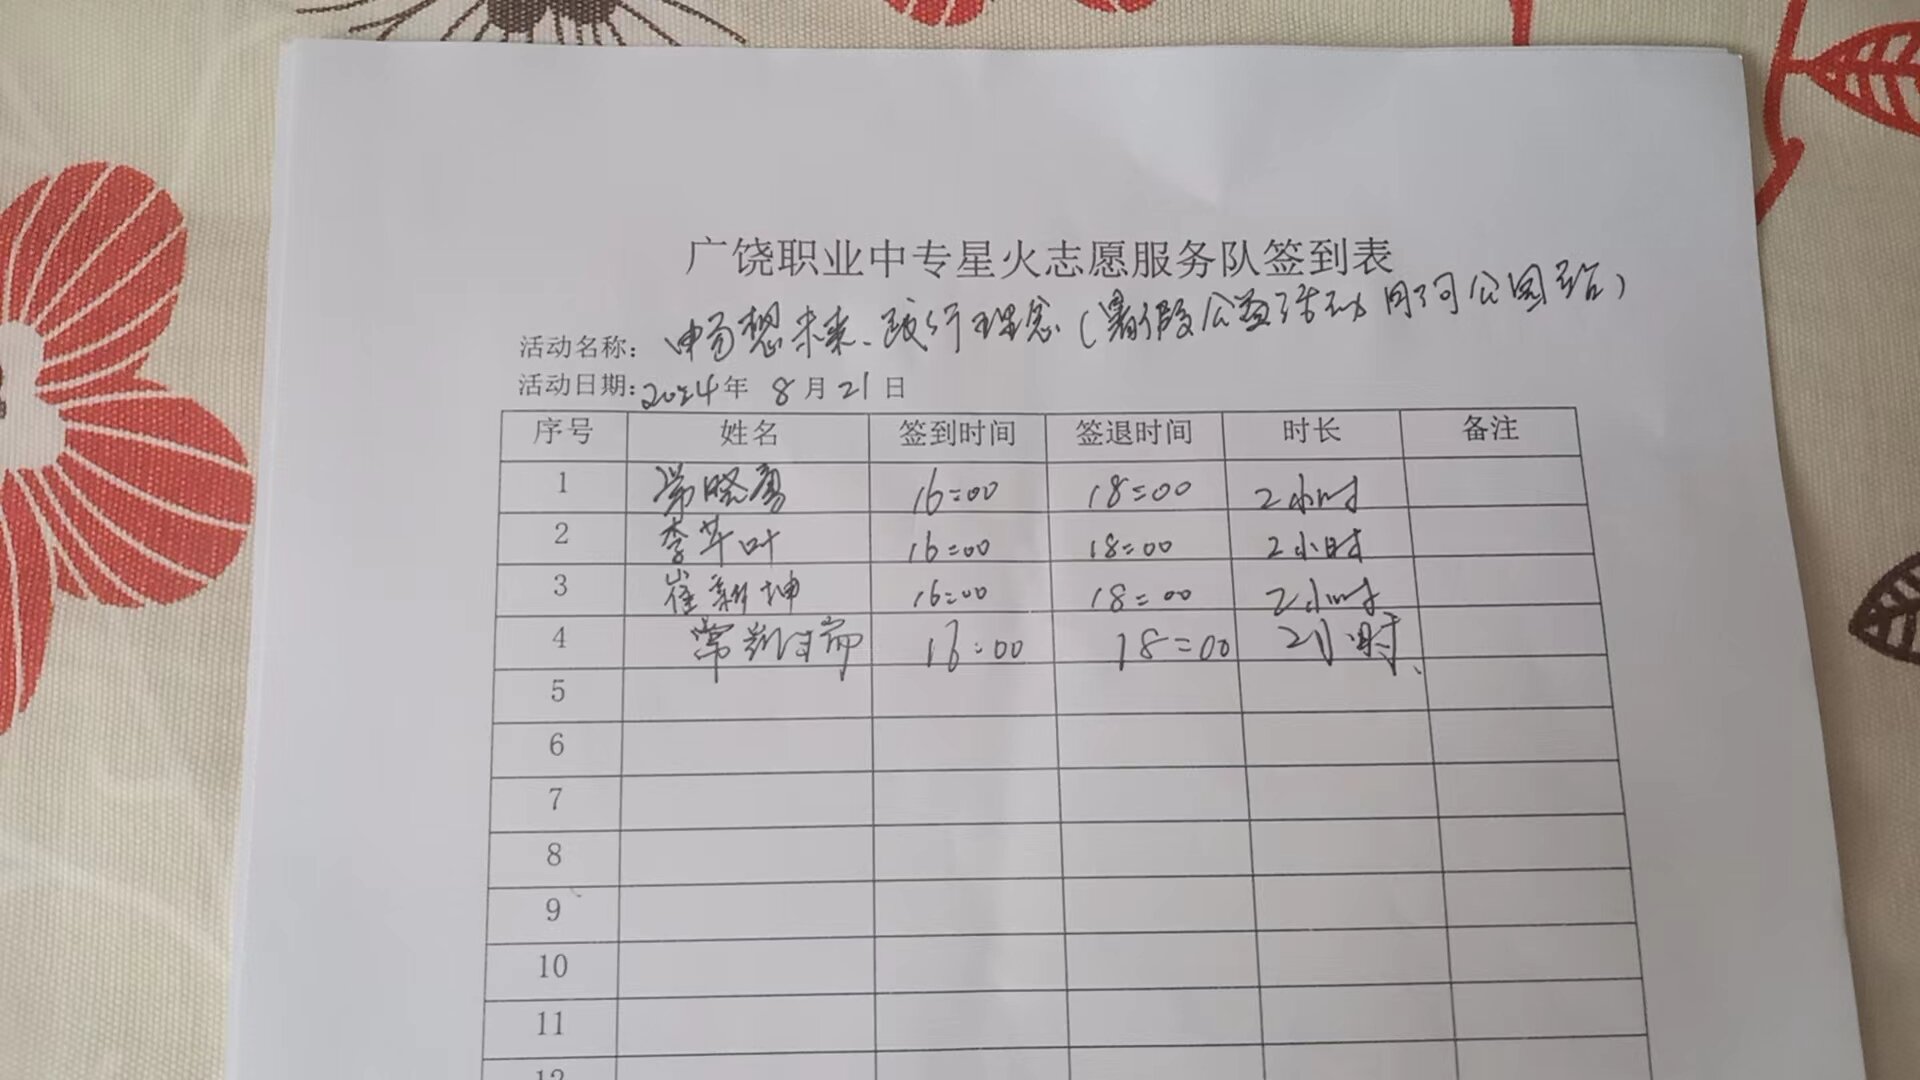 广饶职业中专星火志愿服务队签到表
活动名称: 畅想未来、践行理念(暑假公益活动 月河公园站)
活动日期: 2024年 8月21日
序号 姓名 签到时间 签退时间 时长 备注
1 常晓勇 16:00 18:00 2小时
2 李华叶 16:00 18:00 2小时
3 崔新坤 16:00 18:00 2小时
4 常 16:00 18:00 2小时
5
6
7
8
9
10
11
12